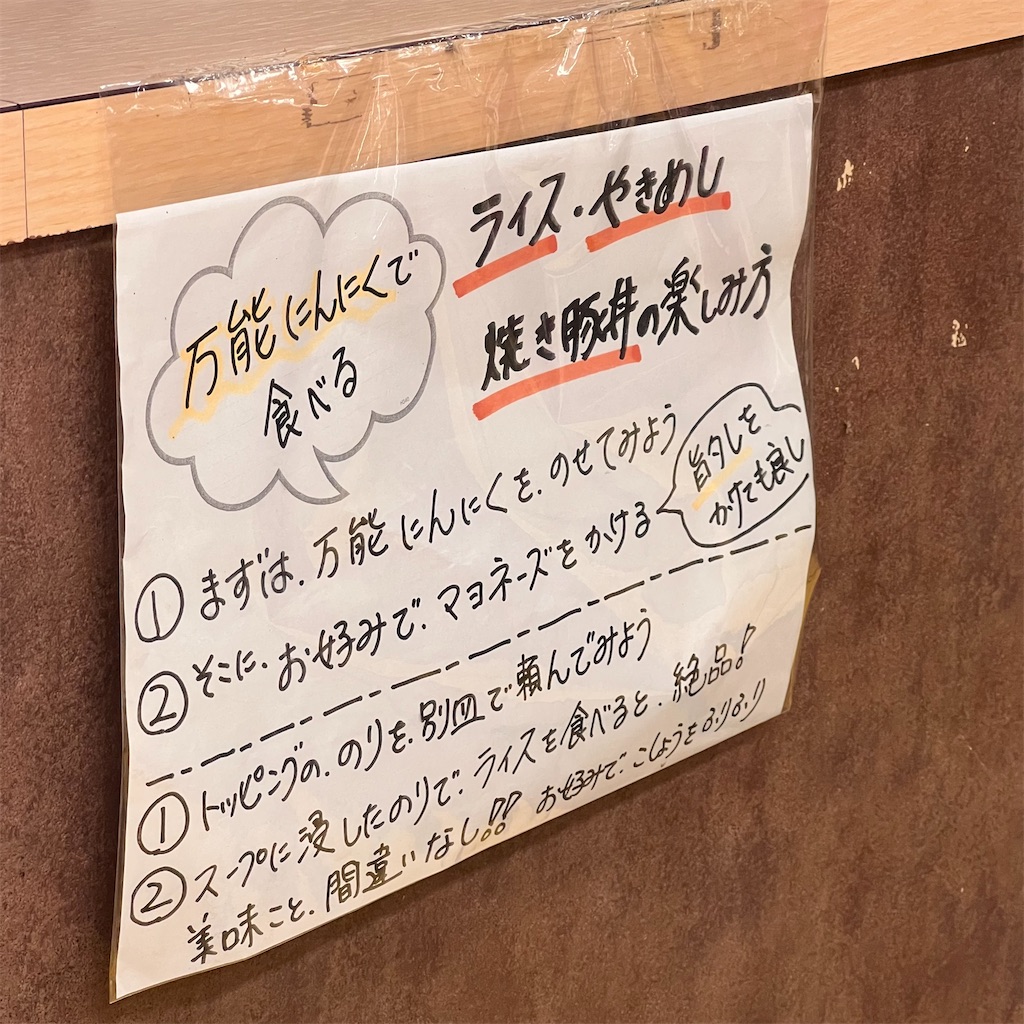 万能にんにくで
食べる
ライス・やきめし
焼き豚丼の楽しみ方
①まずは、万能にんにくを、のせてみよう
②そこに、お好みで、マヨネーズをかける
旨タレを
かけても良し
①トッピングの、のりを、別皿で頼んでみよう
②スープに浸したのりで、ライスを食べると、絶品!
美味こと、間違いなし!! お好みで、こしょうをふりふり